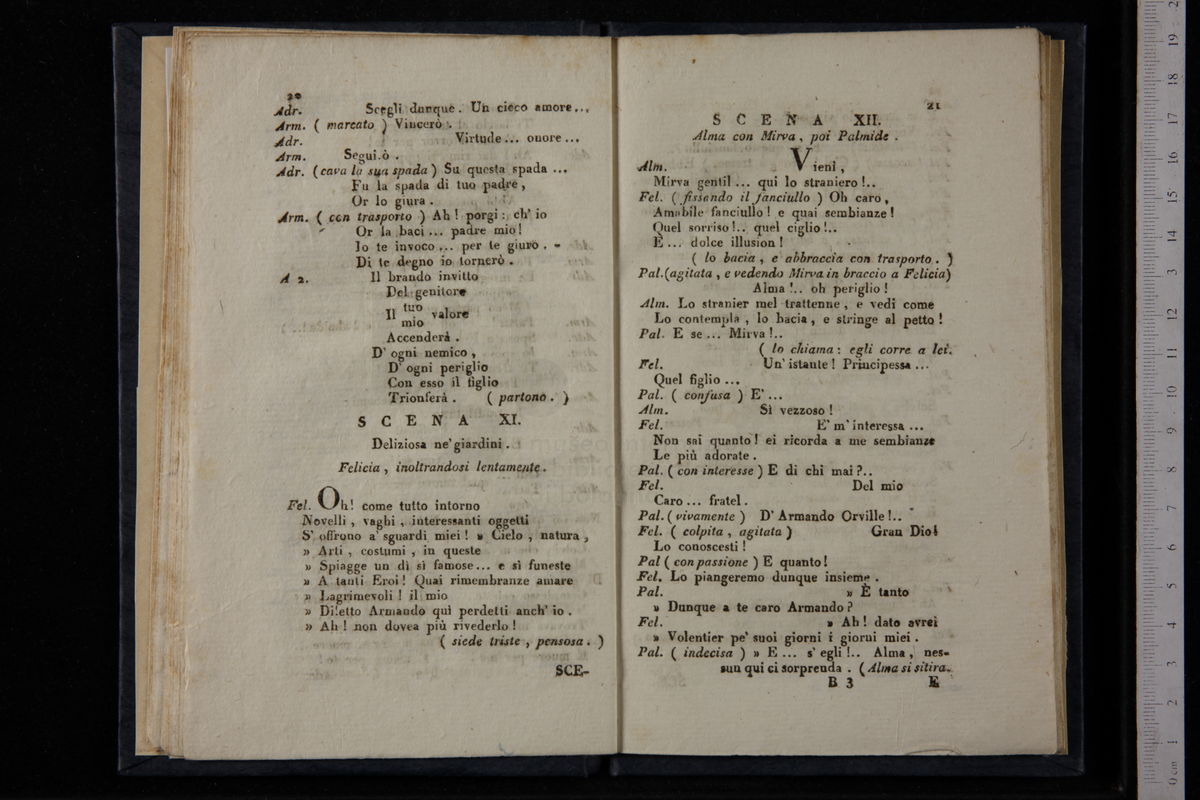 20
Adr. Scegli dunque. Un cieco amore...
Arm. ( marcato ) Vincerò.
Adr. Virtude... onore...
Arm. Segui.ò.
Adr. (cava la sua spada) Su questa spada ...
Fu la spada di tuo padre,
Or lo giura.
Arm. ( con trasporto ) Ah! porgi: ch' io
Or la baci ... padre mio!
Io te invoco ... per te giuro. -
Di te degno io tornerò.
A 2. Il brando invitto
Del genitore
Il tuo valore
mio
Accenderà.
D' ogni nemico,
D' ogni periglio
Con esso il figlio
Trionferà. ( partono. )
SCENA XI.
Deliziosa ne' giardini.
Felicia, inoltrandosi lentamente.
Fel. Oh! come tutto intorno
Novelli, vaghi, interessanti oggetti
S' offrono a' sguardi miei! » Cielo, natura,
» Arti, costumi, in queste
» Spiagge un dì sì famose... e sì funeste
» A tanti Eroi! Quai rimembranze amare
» Lagrimevoli! il mio
» Diletto Armando quì perdetti anch' io.
» Ah! non dovea più rivederlo!
( siede triste, pensosa. )
SCE-
21
SCENA XII.
Alma con Mirva, poi Palmide.
Alm. Vieni,
Mirva gentil ... qui lo straniero!..
Fel. ( fissando il fanciullo ) Oh caro,
Amabile fanciullo! e quai sembianze!
Quel sorriso!.. quel ciglio!..
È ... dolce illusion!
( lo bacia, e abbraccia con trasporto. )
Pal.(agitata, e vedendo Mirva in braccio a Felicia)
Alma!.. oh periglio!
Alm. Lo stranier mel trattenne, e vedi come
Lo contempla, lo bacia, e stringe al petto!
Pal. E se ... Mirva!..
( lo chiama: egli corre a lei.
Fel. Un' istante! Principessa ...
Quel figlio ...
Pal. ( confusa ) E' ...
Alm. Sì vezzoso!
Fel. E' m' interessa ...
Non sai quanto! ei ricorda a me sembianze
Le più adorate.
Pal. ( con interesse ) E di chi mai?..
Fel. Del mio
Caro ... fratel.
Pal. ( vivamente ) D' Armando Orville!..
Fel. ( colpita, agitata ) Gran Dio!
Lo conoscesti!
Pal ( con passione ) E quanto!
Fel. Lo piangeremo dunque insieme.
Pal. » È tanto
» Dunque a te caro Armando?
Fel. » Ah! dato avrei
» Volentier pe' suoi giorni i giorni miei.
Pal. ( indecisa ) » E ... s' egli!.. Alma, nes-
sun qui ci sorprenda. ( Alma si sitira.
B 3 E